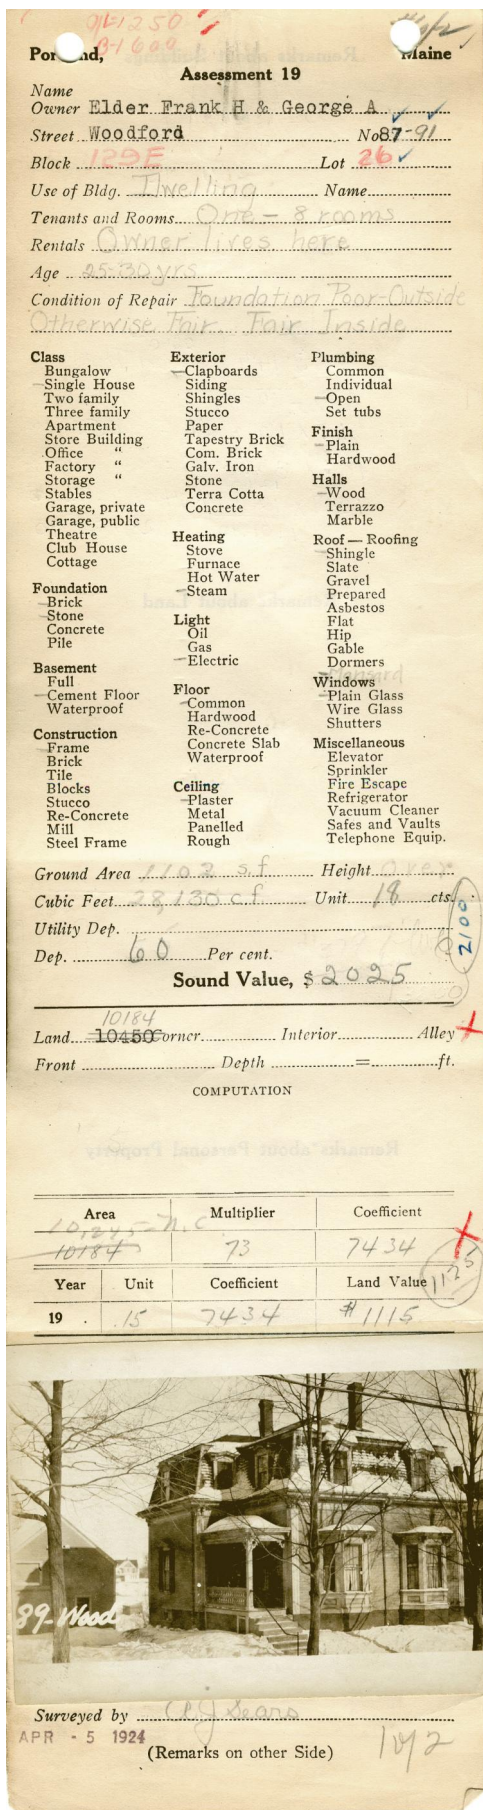 9L-1250
B-1600
Portland, Maine
Assessment 19
Name
Owner Elder Frank H & George A
Street Woodford No 87-91
Block 129E Lot 26
Use of Bldg. Dwelling Name
Tenants and Rooms One - 8 rooms
Rentals Owner lives here
Age 25-30 yrs
Condition of Repair Foundation Poor-Outside
Otherwise Fair. Fair Inside
Class
Bungalow
Single House
Two family
Three family
Apartment
Store Building
Office "
Factory "
Storage "
Stables
Garage, private
Garage, public
Theatre
Club House
Cottage
Foundation
Brick
Stone
Concrete
Pile
Basement
Full
Cement Floor
Waterproof
Construction
Frame
Brick
Tile
Blocks
Stucco
Re-Concrete
Mill
Steel Frame
Exterior
Clapboards
Siding
Shingles
Stucco
Paper
Tapestry Brick
Com. Brick
Galv. Iron
Stone
Terra Cotta
Concrete
Heating
Stove
Furnace
Hot Water
Steam
Light
Oil
Gas
Electric
Floor
Common
Hardwood
Re-Concrete
Concrete Slab
Waterproof
Ceiling
Plaster
Metal
Panelled
Rough
Plumbing
Common
Individual
Open
Set tubs
Finish
Plain
Hardwood
Halls
Wood
Terrazzo
Marble
Roof — Roofing
Shingle
Slate
Gravel
Prepared
Asbestos
Flat
Hip
Gable
Dormers
Mansard
Windows
Plain Glass
Wire Glass
Shutters
Miscellaneous
Elevator
Sprinkler
Fire Escape
Refrigerator
Vacuum Cleaner
Safes and Vaults
Telephone Equip.
Ground Area 1102 s.f. Height Over
Cubic Feet 28,130 c.f. Unit 18 cts.
Utility Dep.
2100
Dep. 60 Per cent.
Sound Value, $ 2025
10184
Land 10450 Corner Interior Alley
Front Depth = ft.
COMPUTATION
Area Multiplier Coefficient
10,245- N.C
10184 73 7434
1125
Year Unit Coefficient Land Value
19 . .15 7434 $1115
89-Wood
Surveyed by A.J. Sears
APR - 5 1924
(Remarks on other Side)
1 of 2